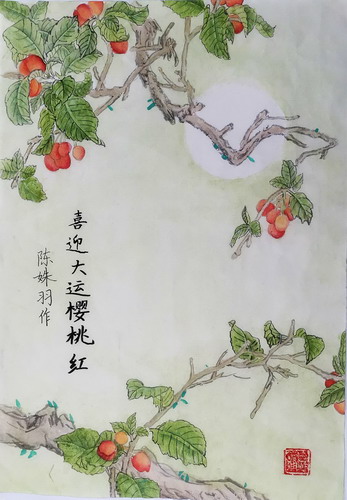 喜迎大运樱桃红
陈姝羽作